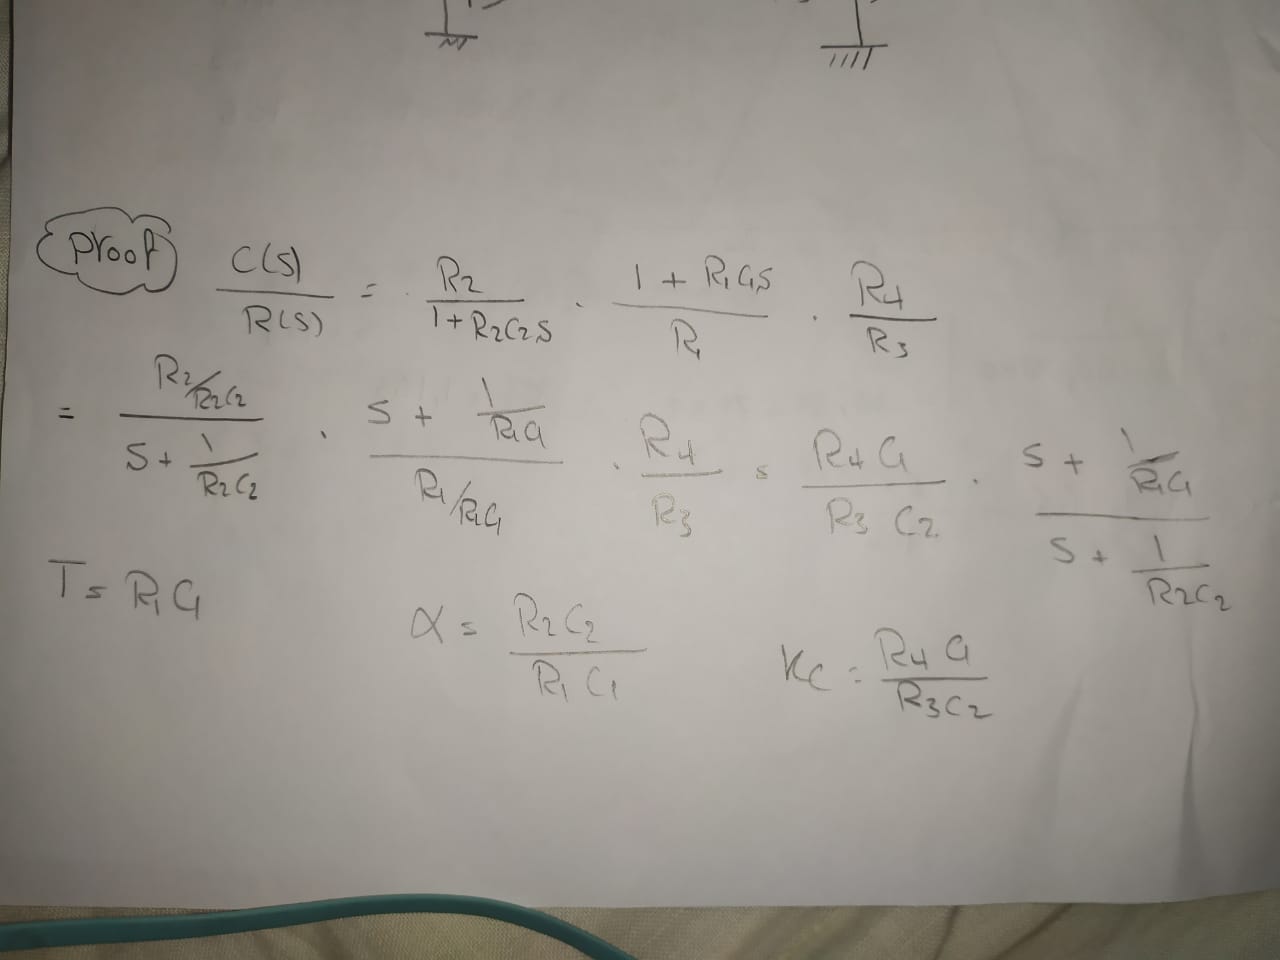 Proof C(S)/R(S) = R2/(1+R2C2S) · (1 + R1C1S)/R1 · R4/R3
= (R2/R2C2)/(S + 1/R2C2) · (S + 1/R1C1)/(R1/R1C1) · R4/R3 = R4C1/R3C2 · (S + 1/R1C1)/(S + 1/R2C2)
T = R1C1 α = R2C2/R1C1 Kc = R4C1/R3C2